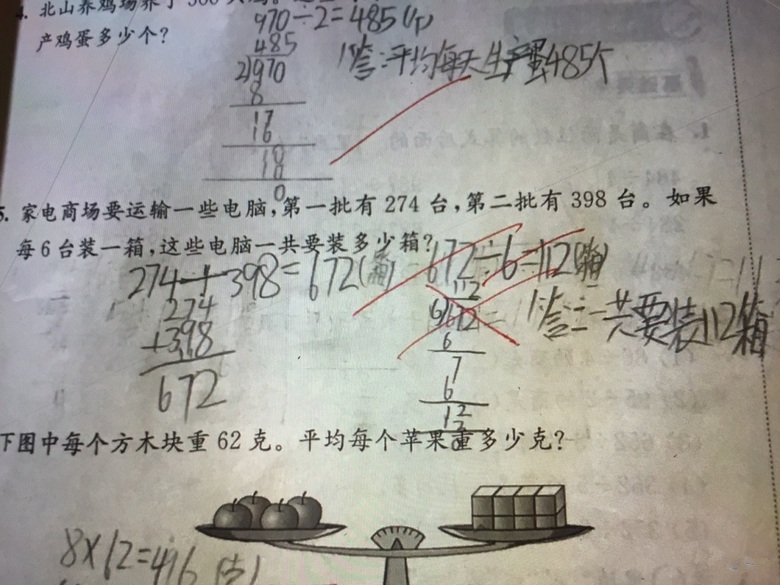 4. 北山养鸡场养了 500 只鸡。
产鸡蛋多少个?
970÷2=485(个)
485
2)970
8
17
16
18
18
0
答:平均每天生产蛋485个
5. 家电商场要运输一些电脑,第一批有 274 台,第二批有 398 台。如果
每 6 台装一箱,这些电脑一共要装多少箱?
274+398=672(箱)
274
+398
672
672÷6=112(箱)
112
6)672
6
7
6
12
12
答:一共要装112箱
下图中每个方木块重 62 克。平均每个苹果重多少克?
8×62=496(克)